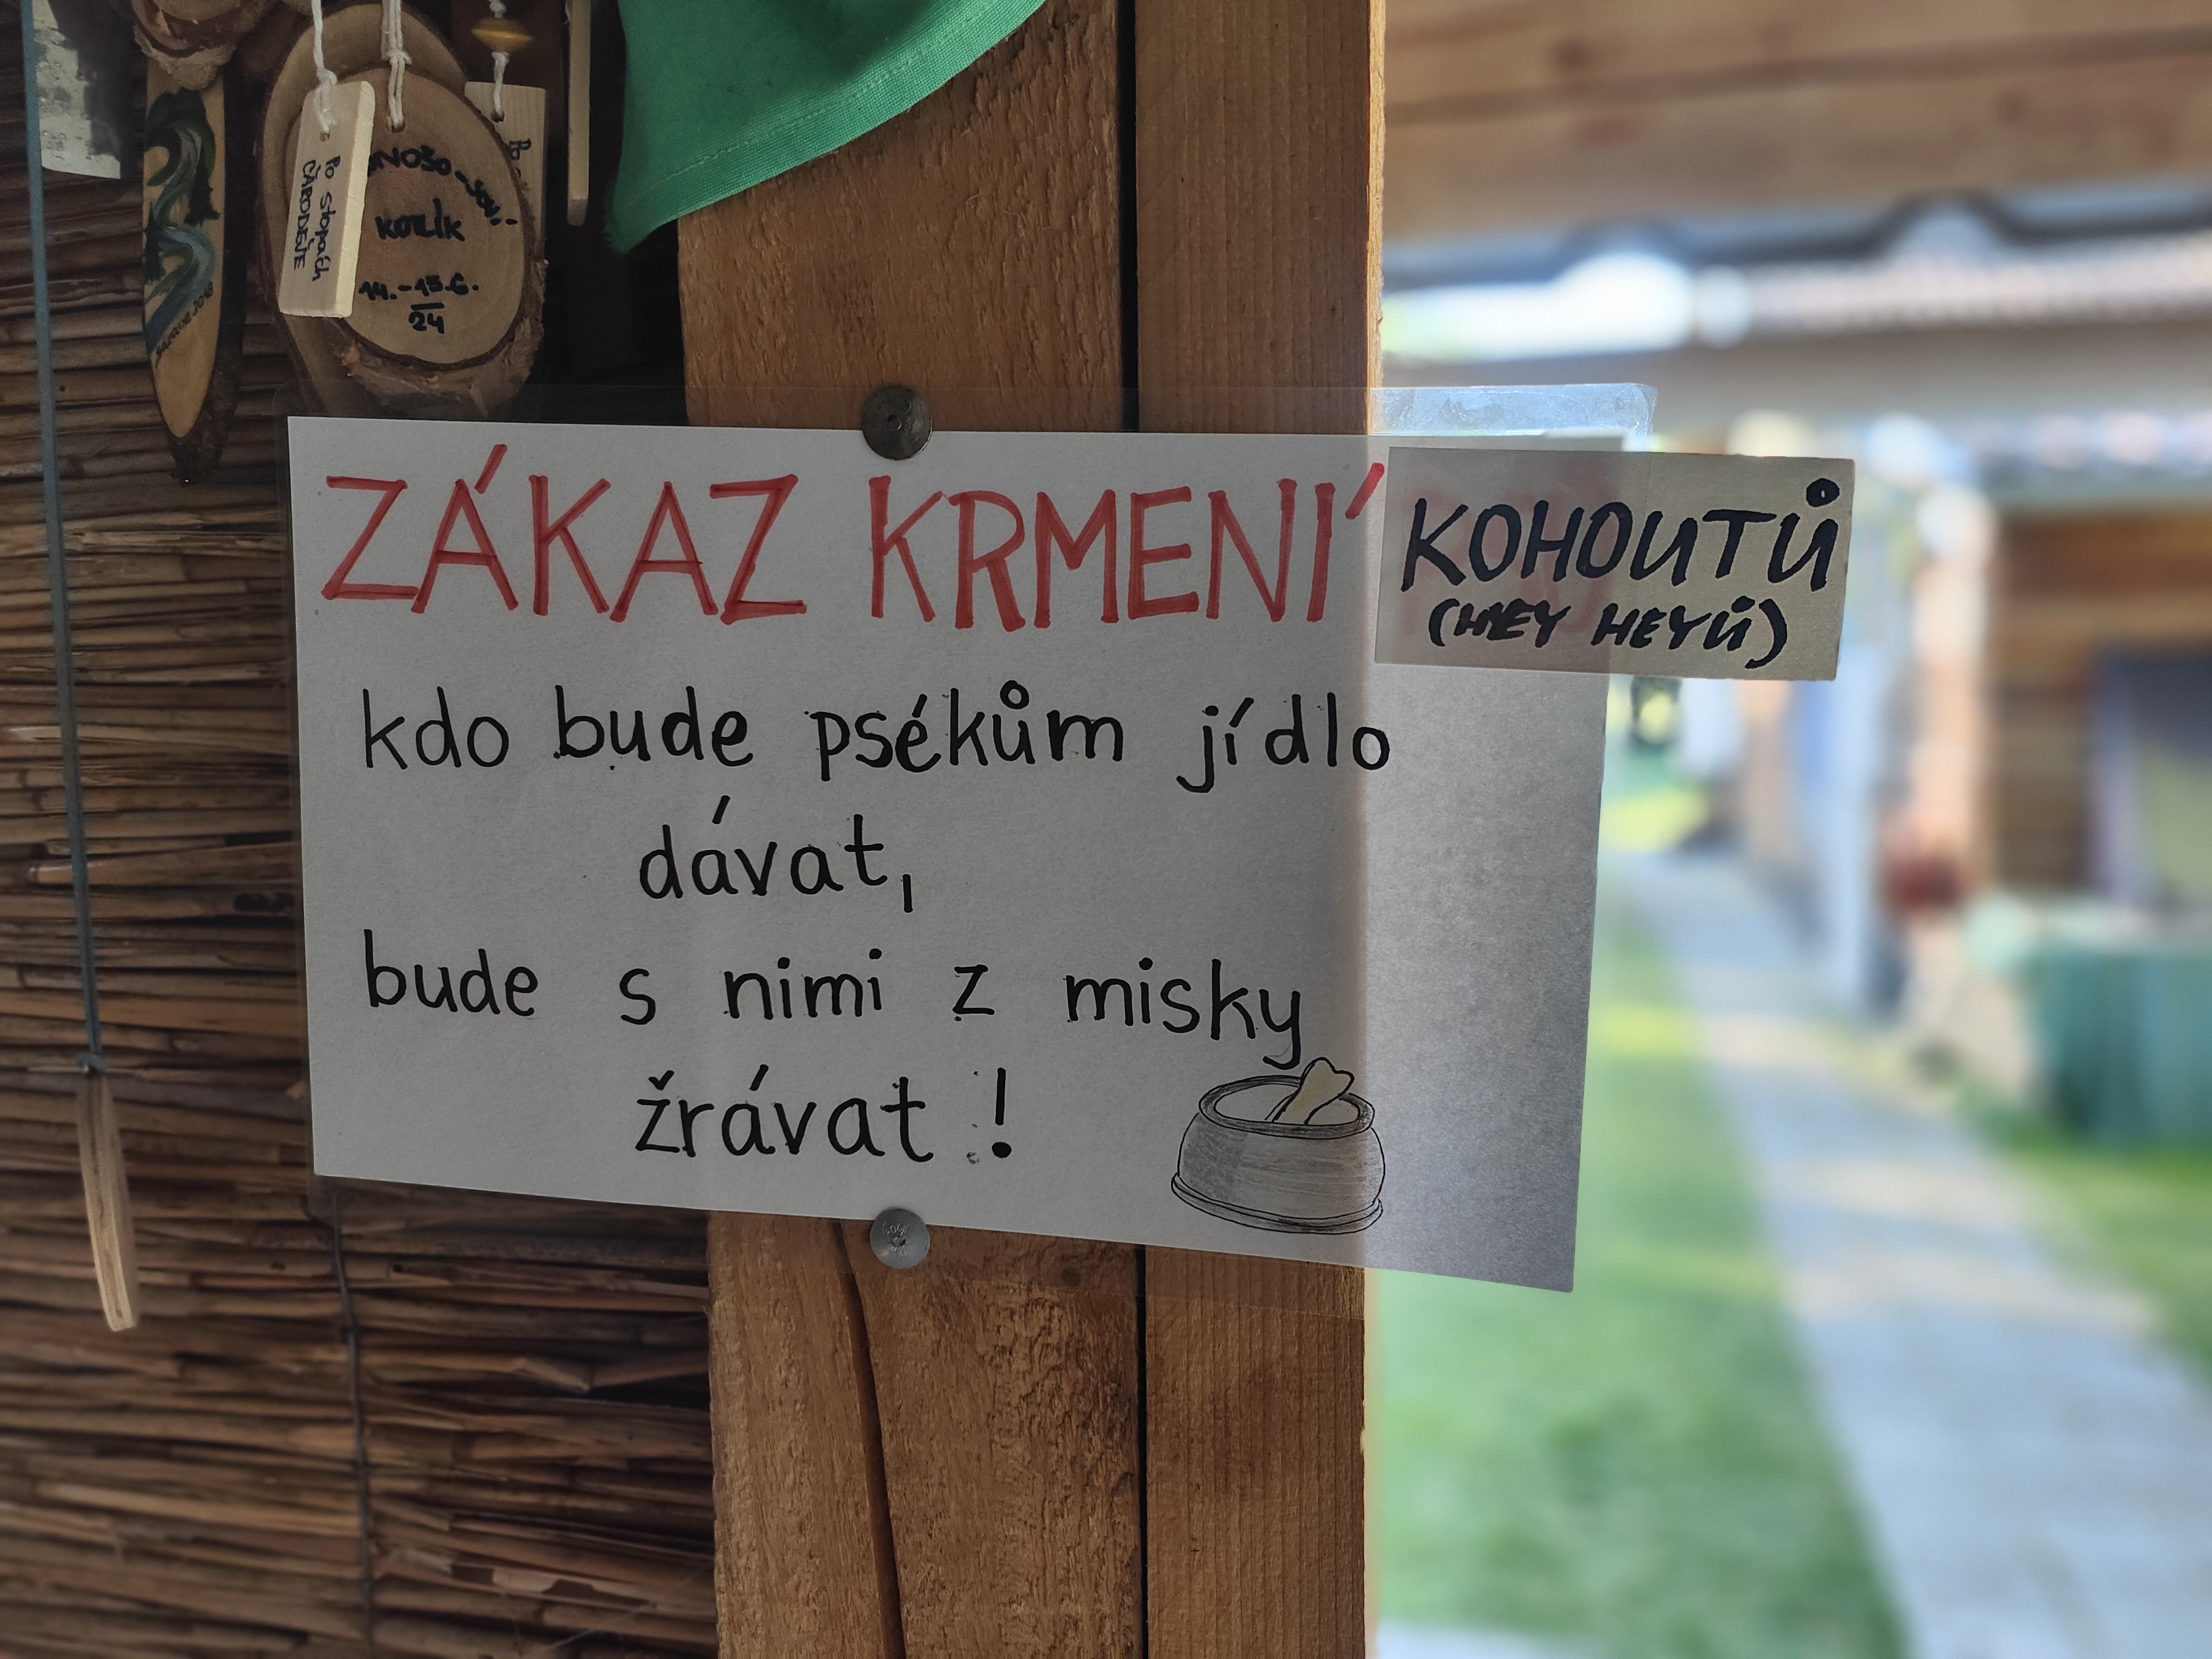 Po stopách
ČARODĚJE
KOLÍK
14.-15.6.
24
ZÁKAZ KRMENÍ KOHOUTŮ
(HEY HEYŮ)
kdo bude psékům jídlo
dávat,
bude s nimi z misky
žrávat!